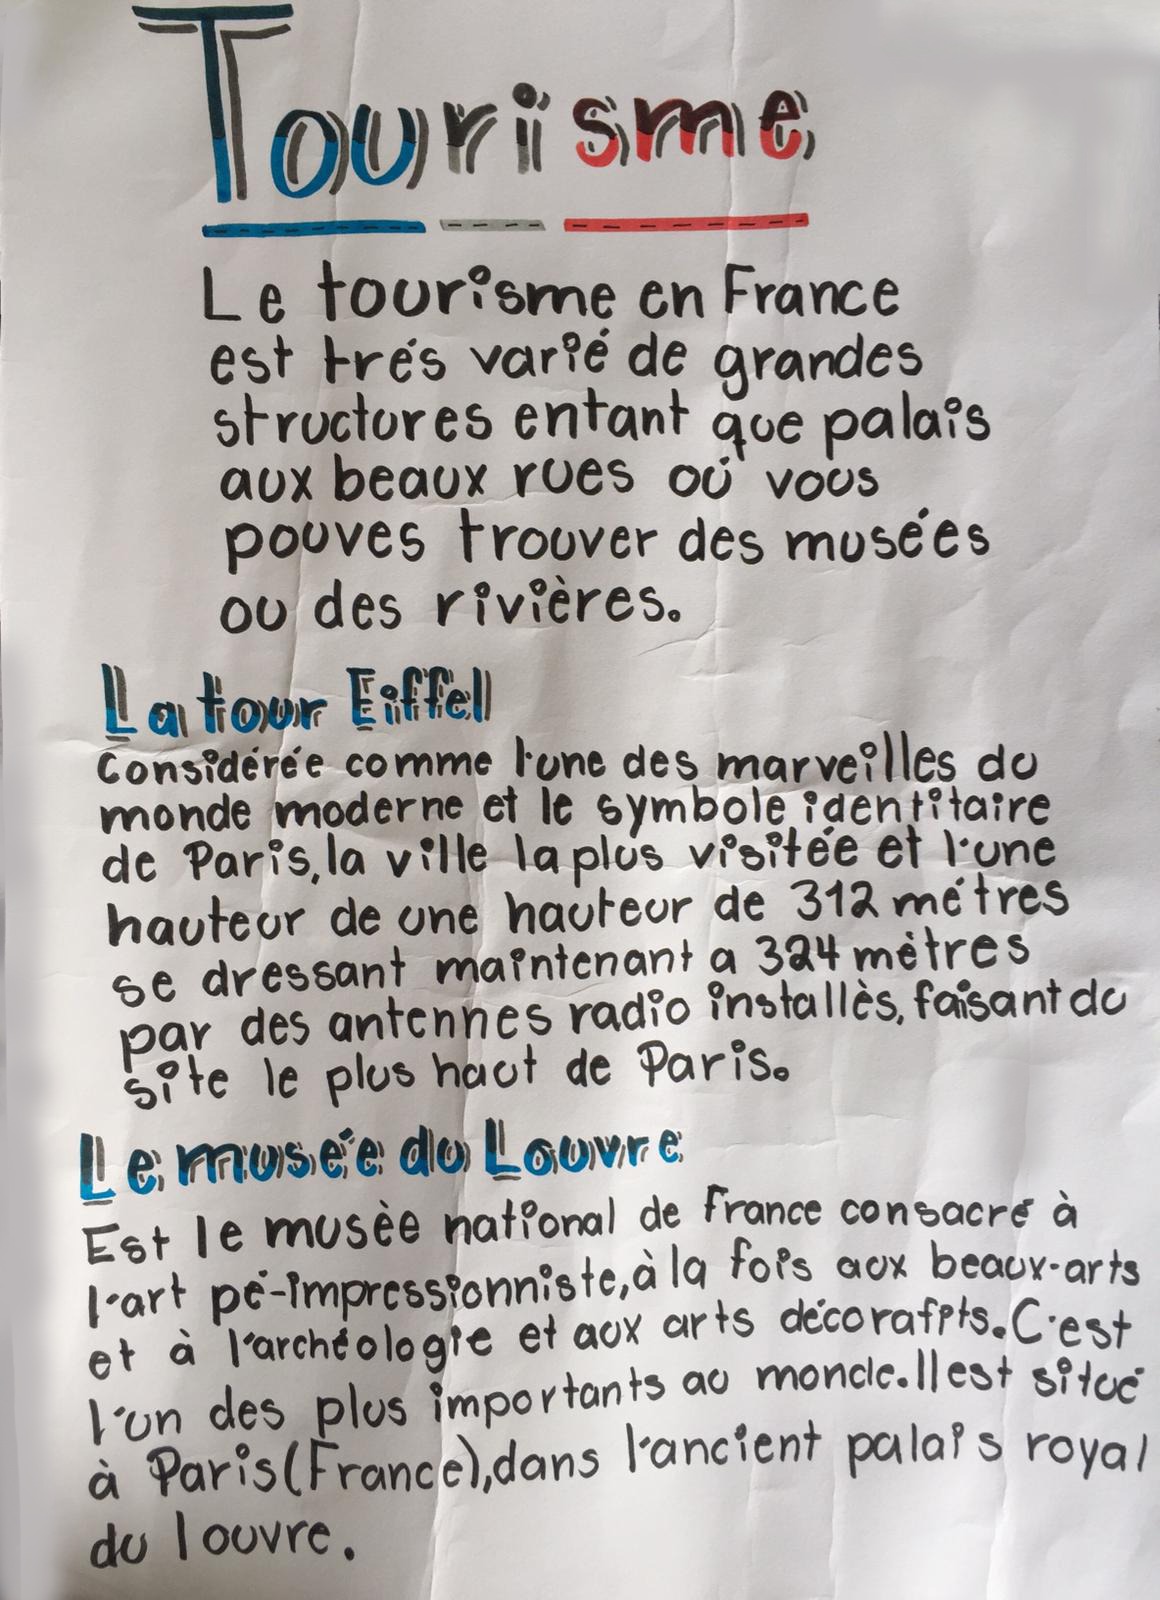 Tourisme
Le tourisme en France
est trés varié de grandes
structures entant que palais
aux beaux rues oú vous
pouves trouver des musées
ou des rivières.
La tour Eiffel
Considérée comme l'une des marveilles du
monde moderne et le symbole identitaire
de Paris, la ville la plus visitée et l'une
hauteur de une hauteur de 312 métres
se dressant maintenant a 324 mètres
par des antennes radio installès, faisant du
site le plus haut de Paris.
Le musée du Louvre
Est le musèe national de France consacré à
l'art pé-impressionniste, à la fois aux beaux-arts
et à l'archéologie et aux arts décorafits. C'est
l'un des plus importants au monde. Il est situé
à Paris (France), dans l'ancient palais royal
du louvre.